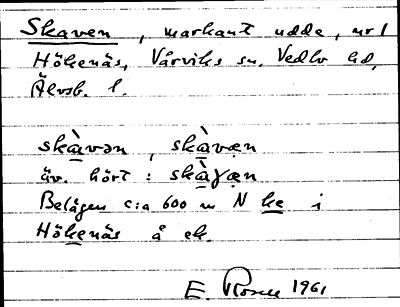 Skaven, markant udde, nr 1
Hökenäs, Vårviks sn, Vedbo hd,
Älvsb. l.
skàvən, skàvæn
äv. hört: skàγæn
Belägen c:a 600 m N ke i
Hökenäs å ek.
E. Rosell 1961